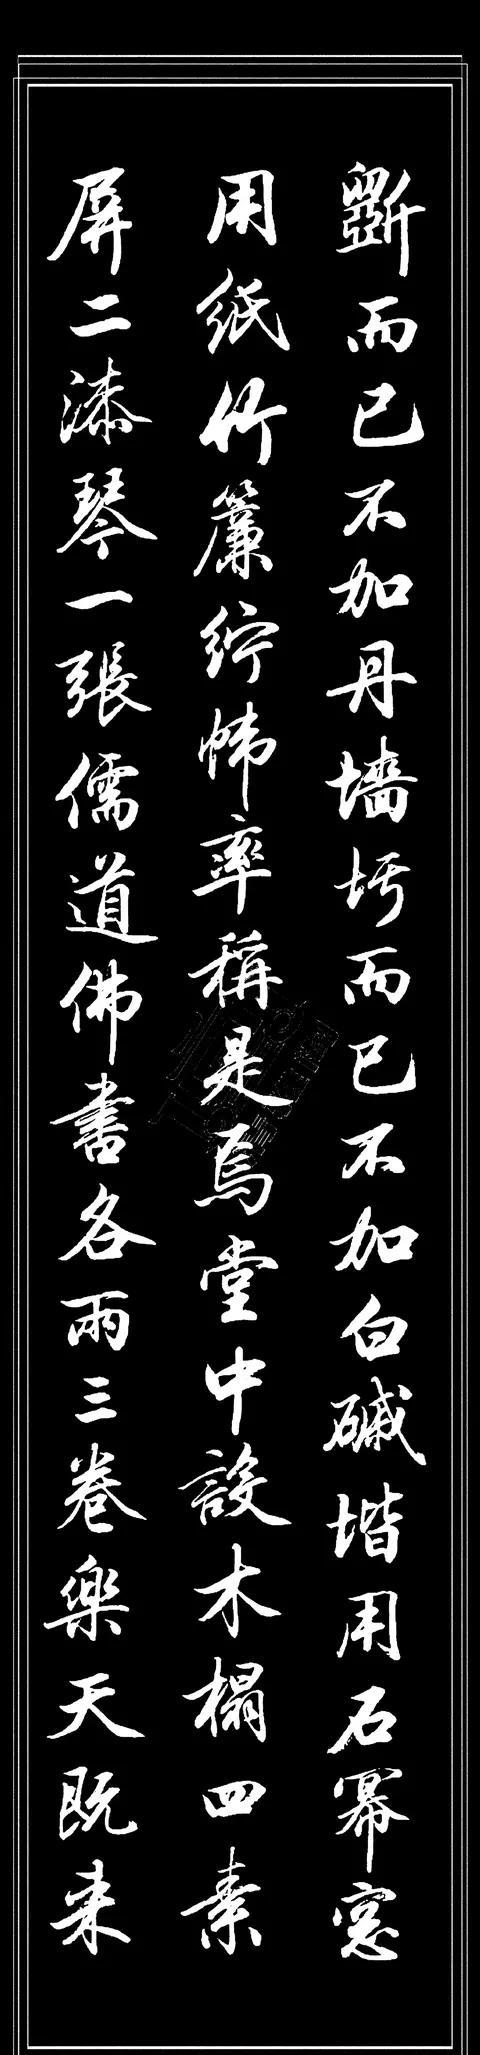 斵而已不加丹墻圬而已不加白磩堦用石冪窓
用紙竹簾紵幃率稱是焉堂中設木榻四素
屏二漆琴一張儒道佛書各兩三卷樂天既来